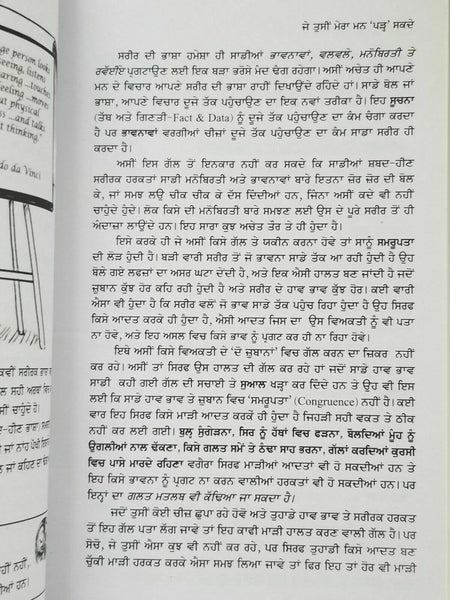 ਜੇ ਤੁਸੀਂ ਮੇਰਾ ਮਨ ‘ਪੜ੍ਹ’ ਸਕਦੇ
ਸਰੀਰ ਦੀ ਭਾਸ਼ਾ ਹਮੇਸ਼ਾ ਹੀ ਸਾਡੀਆਂ ਭਾਵਨਾਵਾਂ, ਵਲਵਲੇ, ਮਨੋਬਿਰਤੀ ਤੇ
ਰਵੱਈਏ ਪ੍ਰਗਟਾਉਣ ਲਈ ਇਕ ਬੜਾ ਭਰੋਸੇ ਮੰਦ ਢੰਗ ਰਹੇਗਾ। ਅਸੀਂ ਅਚੇਤ ਹੀ ਆਪਣੇ
ਮਨ ਦੇ ਵਿਚਾਰ ਆਪਣੇ ਸਰੀਰ ਦੀ ਭਾਸ਼ਾ ਰਾਹੀਂ ਦਿਖਾਉਂਦੇ ਰਹਿੰਦੇ ਹਾਂ। ਸਾਡੇ ਬੋਲ ਜਾਂ
ਭਾਸ਼ਾ, ਆਪਣੇ ਵਿਚਾਰ ਦੂਜੇ ਤੱਕ ਪਹੁੰਚਾਉਣ ਦਾ ਇਕ ਨਵਾਂ ਤਰੀਕਾ ਹੈ। ਇਹ ਸੂਚਨਾ
(ਤੱਥ ਅਤੇ ਗਿਣਤੀ-Fact & Data) ਨੂੰ ਦੂਜੇ ਤੱਕ ਪਹੁੰਚਾਉਣ ਦਾ ਕੰਮ ਚੰਗਾ ਕਰਦਾ
ਹੈ ਪਰ ਭਾਵਨਾਵਾਂ ਵਰਗੀਆਂ ਚੀਜ਼ਾਂ ਦੂਜੇ ਤੱਕ ਪਹੁੰਚਾਉਣ ਦਾ ਕੰਮ ਸਾਡਾ ਸਰੀਰ ਹੀ
ਕਰਦਾ ਹੈ।
ਅਸੀਂ ਇਸ ਗੱਲ ਤੋਂ ਇਨਕਾਰ ਨਹੀਂ ਕਰ ਸਕਦੇ ਕਿ ਸਾਡੀਆਂ ਸ਼ਬਦ-ਹੀਣ
ਸਰੀਰਕ ਹਰਕਤਾਂ ਸਾਡੀ ਮਨੋਬਿਰਤੀ ਅਤੇ ਭਾਵਨਾਵਾਂ ਬਾਰੇ ਇਤਨਾ ਜ਼ੋਰ ਜ਼ੋਰ ਦੀ ਬੋਲ
ਕੇ, ਜਾਂ ਸਮਝ ਲਉ ਚੀਕ ਚੀਕ ਕੇ ਦੱਸ ਦਿੰਦੀਆਂ ਹਨ, ਜਿੰਨਾ ਅਸੀਂ ਕਦੇ ਵੀ ਨਹੀਂ
ਚਾਹੁੰਦੇ ਹੁੰਦੇ। ਲੋਕ ਕਿਸੇ ਦੀ ਮਨੋਬਿਰਤੀ ਬਾਰੇ ਸਮਝਣ ਲਈ ਉਸ ਦੇ ਪੂਰੇ ਸਰੀਰ ਤੋਂ ਹੀ
ਅੰਦਾਜ਼ਾ ਲਾਉਂਦੇ ਹਨ। ਇਹ ਸਾਰਾ ਕੁਝ ਅਚੇਤ ਤੌਰ ਤੇ ਹੀ ਹੁੰਦਾ ਹੈ।
ਇਸੇ ਕਰਕੇ ਹੀ ਜੇ ਅਸੀਂ ਕਿਸੇ ਗੱਲ ਤੇ ਯਕੀਨ ਕਰਨਾ ਹੋਵੇ ਤਾਂ ਸਾਨੂੰ ਸਮਰੂਪਤਾ
ਦੀ ਲੋੜ ਹੁੰਦੀ ਹੈ। ਬੜੀ ਵਾਰੀ ਸਰੀਰ ਤੋਂ ਜੋ ਭਾਵਨਾ ਸਾਡੇ ਤੱਕ ਆ ਰਹੀ ਹੁੰਦੀ ਹੈ ਉਹ
ਬੋਲੇ ਗਏ ਲਫ਼ਜ਼ਾਂ ਦਾ ਅਸਰ ਘਟਾ ਦੇਂਦੀ ਹੈ, ਅਤੇ ਇਕ ਐਸੀ ਹਾਲਤ ਬਣ ਜਾਂਦੀ ਹੈ ਜਦੋਂ
ਜ਼ੁਬਾਨ ਕੁੱਝ ਹੋਰ ਕਹਿ ਰਹੀ ਹੁੰਦੀ ਹੈ ਅਤੇ ਸਰੀਰ ਦੇ ਹਾਵ ਭਾਵ ਕੁੱਝ ਹੋਰ। ਕਈ ਵਾਰੀ
ਐਸਾ ਵੀ ਹੁੰਦਾ ਹੈ ਕਿ ਸਰੀਰ ਵਲੋਂ ਜੋ ਭਾਵ ਸਾਡੇ ਤੱਕ ਪਹੁੰਚ ਰਿਹਾ ਹੁੰਦਾ ਹੈ ਉਹ ਸਿਰਫ
ਕਿਸੇ ਆਦਤ ਕਰਕੇ ਹੀ ਹੁੰਦਾ ਹੈ, ਐਸੀ ਆਦਤ ਜਿਸ ਦਾ ਉਸ ਵਿਅਕਤੀ ਨੂੰ ਵੀ ਪਤਾ
ਨਾ ਹੋਵੇ, ਅਤੇ ਇਹ ਅਸਲ ਵਿਚ ਕਿਸੇ ਭਾਵ ਨੂੰ ਪ੍ਰਗਟ ਕਰ ਹੀ ਨਾ ਰਿਹਾ ਹੋਵੇ।
ਇਥੇ ਅਸੀਂ ਕਿਸੇ ਵਿਅਕਤੀ ਦੇ ‘ਦੋ ਜ਼ੁਬਾਨਾਂ’ ਵਿਚ ਗੱਲ ਕਰਨ ਦਾ ਜ਼ਿਕਰ ਨਹੀਂ
ਕਰ ਰਹੇ। ਅਸੀਂ ਤਾਂ ਸਿਰਫ ਉਸ ਹਾਲਤ ਦੀ ਗੱਲ ਕਰ ਰਹੇ ਹਾਂ ਜਦੋਂ ਸਾਡੇ ਹਾਵ ਭਾਵ
ਸਾਡੀ ਕਹੀ ਗਈ ਗੱਲ ਦੀ ਸਚਾਈ ਤੇ ਸੁਆਲ ਖੜ੍ਹਾ ਕਰ ਦਿੰਦੇ ਹਨ ਤੇ ਉਹ ਵੀ ਇਸ
ਲਈ ਕਿ ਸਾਡੇ ਹਾਵ ਭਾਵ ਤੇ ਜ਼ੁਬਾਨ ਵਿਚ ‘ਸਮਰੂਪਤਾ’ (Congruence) ਨਹੀਂ ਹੈ। ਕਈ
ਵਾਰ ਇਹ ਸਿਰਫ ਕਿਸੇ ਮਾੜੀ ਆਦਤ ਕਰਕੇ ਹੀ ਹੁੰਦਾ ਹੈ ਜਿਹੜੀ ਸਹੀ ਵਕਤ ਤੇ ਠੀਕ
ਨਹੀਂ ਕਰ ਲਈ ਗਈ। ਬੁਲ੍ਹ ਸੁੰਗੇੜਨਾ, ਸਿਰ ਨੂੰ ਹੱਥਾਂ ਵਿਚ ਫੜਨਾ, ਬੋਲਦਿਆਂ ਮੂੰਹ ਨੂੰ
ਉਂਗਲੀਆਂ ਨਾਲ ਢੱਕਣਾ, ਕਿਸੇ ਗਲਤ ਸਮੇਂ ਤੇ ਠੰਢਾ ਸਾਹ ਭਰਨਾ, ਗੱਲਾਂ ਕਰਦਿਆਂ ਕੁਰਸੀ
ਵਿਚ ਪਾਸੇ ਮਾਰਦੇ ਰਹਿਣਾ ਵਗੈਰਾ ਸਿਰਫ ਮਾੜੀਆਂ ਆਦਤਾਂ ਵੀ ਹੋ ਸਕਦੀਆਂ ਹਨ ਤੇ
ਇਹ ਕਿਸੇ ਭਾਵਨਾ ਨੂੰ ਪ੍ਰਗਟ ਨਾ ਕਰਨ ਵਾਲੀਆਂ ਹਰਕਤਾਂ ਵੀ ਹੋ ਸਕਦੀਆਂ ਹਨ। ਪਰ
ਇਨ੍ਹਾਂ ਦਾ ਗਲਤ ਮਤਲਬ ਵੀ ਕੱਢਿਆ ਜਾ ਸਕਦਾ ਹੈ।
ਜਦੋਂ ਤੁਸੀਂ ਕੋਈ ਚੀਜ਼ ਛੁਪਾ ਰਹੇ ਹੋਵੋ ਅਤੇ ਤੁਹਾਡੇ ਹਾਵ ਭਾਵ ਤੇ ਸਰੀਰਕ ਹਰਕਤ
ਤੋਂ ਇਹ ਗੱਲ ਪਤਾ ਲੱਗ ਜਾਵੇ ਤਾਂ ਇਹ ਕਾਫੀ ਮਾੜੀ ਹਾਲਤ ਕਰਨ ਵਾਲੀ ਗੱਲ ਹੈ। ਪਰ
ਸੋਚੋ, ਜੇ ਤੁਸੀਂ ਐਸਾ ਕੁਝ ਵੀ ਨਹੀਂ ਕਰ ਰਹੇ, ਪਰ ਸਿਰਫ ਤੁਹਾਡੀ ਕਿਸੇ ਆਦਤ ਬਣ
ਚੁੱਕੀ ਮਾੜੀ ਹਰਕਤ ਕਰਕੇ ਐਸਾ ਸਮਝ ਲਿਆ ਜਾਵੇ ਤਾਂ ਫਿਰ ਇਹ ਤਾਂ ਹੋਰ ਵੀ ਮਾੜੀ
person looks
seeing, listen
touching
feeling...moves
out physical
ss...and talks
t thinking."
do da Vinci